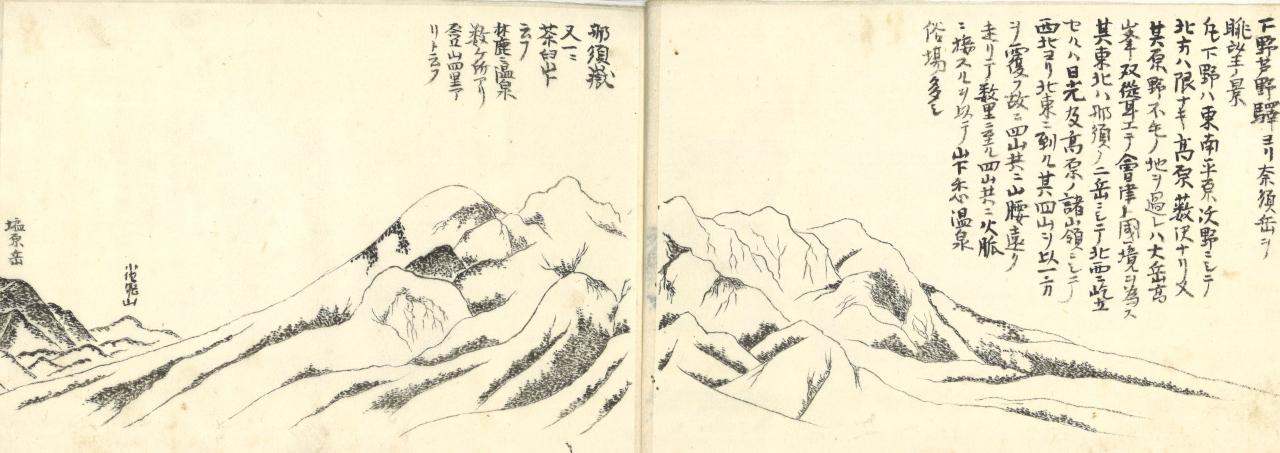 下野芦野驛ヨリ奈須岳ヲ
眺望ノ景
下野ハ東南平原沃野ニシテ
北方ハ限ナキ高原薮沢ナリ又
其原野不毛ノ地ヲ過レハ大岳高
峯双従耳エテ會津ト國境ヲ為ス
其東北ハ那須ノ二岳ニシテ北西ニ屹立
セルハ日光及高原ノ諸山嶺ニシテ
西北ヨリ北東ニ到ル其四山ヲ以一方
ヲ覆フ故ニ四山共ニ山腰遠ク
走リテ数里ニ至ル四山共ニ火脈
ニ接スルヲ以テ山下悉温泉
浴場多シ
那須嶽
又一ニ
茶臼山ト
云フ
林鹿ニ温泉
数ケ所アリ
登山四里
リト云フ
塩原岳
山